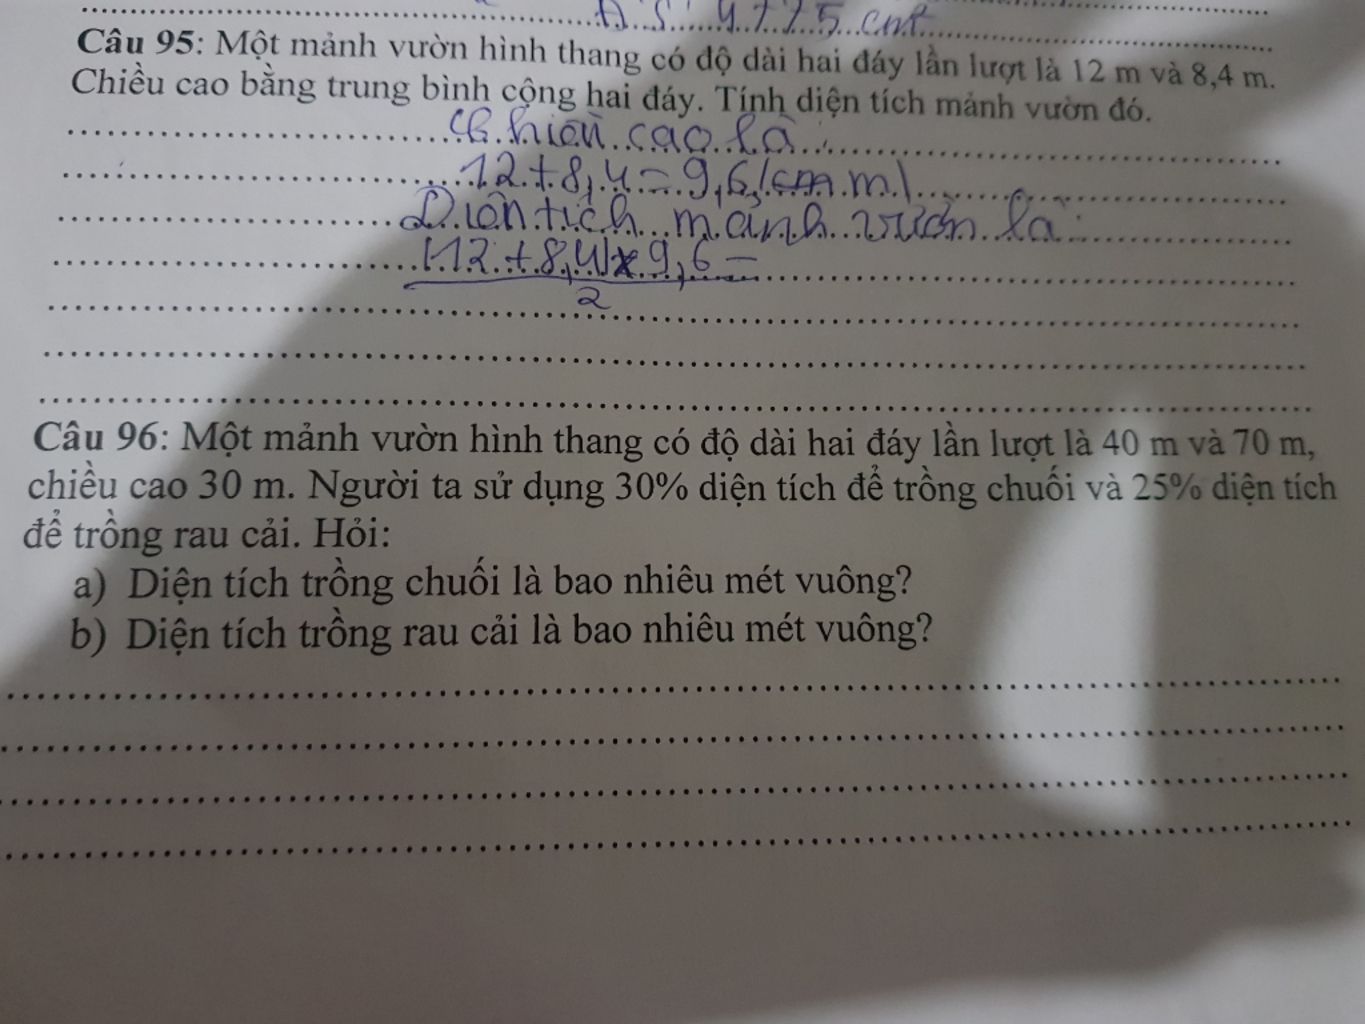 Đ.S: 4775 cm²
Câu 95: Một mảnh vườn hình thang có độ dài hai đáy lần lượt là 12 m và 8,4 m.
Chiều cao bằng trung bình cộng hai đáy. Tính diện tích mảnh vườn đó.
Chiều cao là:
12 + 8,4 = 9,6 (m)
Diện tích mảnh vườn là:
(12 + 8,4) x 9,6 =
2
Câu 96: Một mảnh vườn hình thang có độ dài hai đáy lần lượt là 40 m và 70 m,
chiều cao 30 m. Người ta sử dụng 30% diện tích để trồng chuối và 25% diện tích
để trồng rau cải. Hỏi:
a) Diện tích trồng chuối là bao nhiêu mét vuông?
b) Diện tích trồng rau cải là bao nhiêu mét vuông?